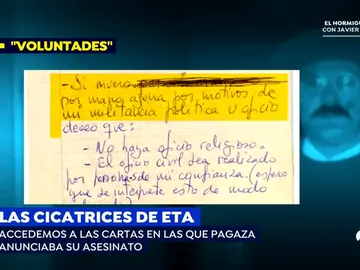 "VOLUNTADES"
EL HORMIGUE
CON JAVIER
- Si muero
por mano ajena por motivos de
mi militancia política u oficio
deseo que:
- No haya oficio religioso.
- El oficio civil sea realizado
por personas de mi confianza. (espero
que se interprete esto de modo
LAS CICATRICES DE ETA
ACCEDEMOS A LAS CARTAS EN LAS QUE PAGAZA
ANUNCIABA SU ASESINATO